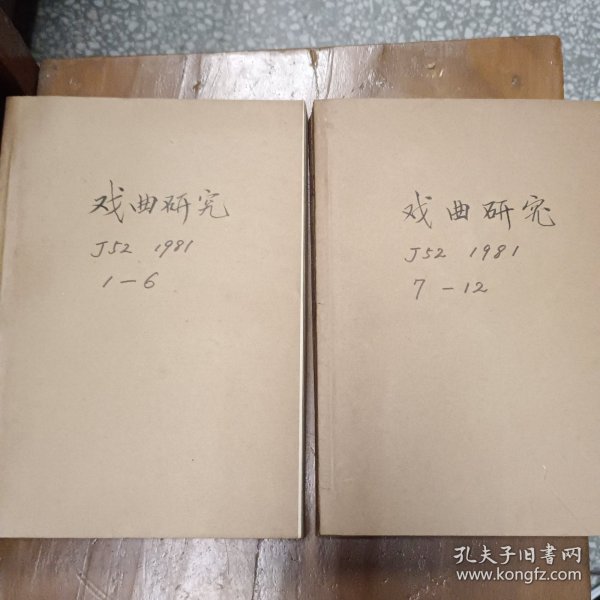 戏曲研究
J52 1981
1-6
戏曲研究
J52 1981
7-12
孔夫子旧書网
www.kongfz.com